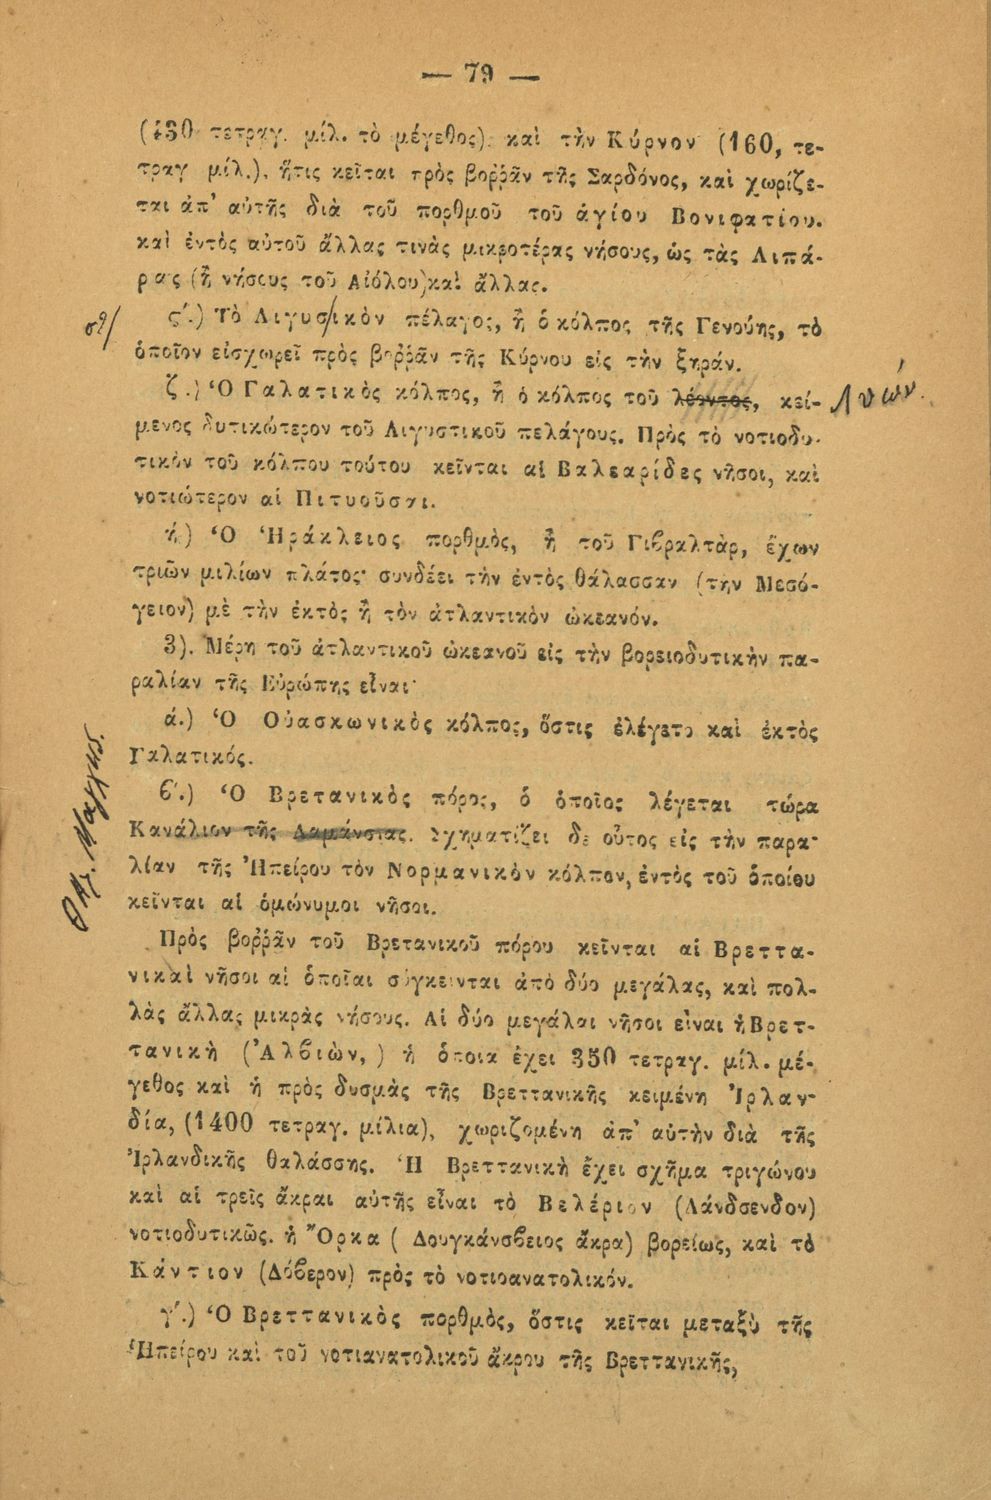 — 79 —
(430 τετραγ. μίλ. τὸ μέγεθος) καὶ τὴν Κύρνον (160, τε-
τραγ μίλ.), ἥτις κεῖται πρὸς βοῤῥᾶν τῆς Σαρδόνος, καὶ χωρίζε-
ται ἀπ' αὐτῆς διὰ τοῦ πορθμοῦ τοῦ ἁγίου Βονιφατίου.
καὶ ἐντὸς αὐτοῦ ἄλλας τινὰς μικροτέρας νήσους, ὡς τὰς Λιπά-
ρας (ἢ νήσους τοῦ Αἰόλου) καὶ ἄλλας.
ς'.) Τὸ Λιγυσικὸν πέλαγος, ἢ ὁ κόλπος τῆς Γενούης, τὸ
ὁποῖον εἰσχωρεῖ πρὸς βοῤῥᾶν τῆς Κύρνου εἰς τὴν ξηράν.
ζ.) Ὁ Γαλατικὸς κόλπος, ἢ ὁ κόλπος τοῦ λέοντος, κεί-
μενος δυτικώτερον τοῦ Λιγυστικοῦ πελάγους. Πρὸς τὸ νοτιοδυ-
τικὸν τοῦ κόλπου τούτου κεῖνται αἱ Βαλεαρίδες νῆσοι, καὶ
νοτιώτερον αἱ Πιτυοῦσαι.
ή.) Ὁ Ἡράκλειος πορθμὸς, ἢ τοῦ Γιβραλτὰρ, ἔχων
τριῶν μιλίων πλάτος· συνδέει τὴν ἐντὸς θάλασσαν (τὴν Μεσό-
γειον) μὲ τὴν ἐκτὸς ἢ τὸν ἀτλαντικὸν ὠκεανόν.
3). Μέρη τοῦ ἀτλαντικοῦ ὠκεανοῦ εἰς τὴν βορειοδυτικὴν πα-
ραλίαν τῆς Εὐρώπης εἶναι·
ά.) Ὁ Οὐασκωνικὸς κόλπος, ὅστις ἐλέγετο καὶ ἐκτὸς
Γαλατικός.
β'.) Ὁ Βρετανικὸς πόρος, ὁ ὁποῖος λέγεται τώρα
Κανάλιον τῆς Λαμάνσιας. Σχηματίζει δὲ οὗτος εἰς τὴν παρα-
λίαν τῆς Ἠπείρου τὸν Νορμανικὸν κόλπον, ἐντὸς τοῦ ὁποίου
κεῖνται αἱ ὁμώνυμοι νῆσοι.
Πρὸς βοῤῥᾶν τοῦ Βρετανικοῦ πόρου κεῖνται αἱ Βρεττα-
νικαὶ νῆσοι αἱ ὁποῖαι σύγκεινται ἀπὸ δύο μεγάλας, καὶ πολ-
λὰς ἄλλας μικρὰς νήσους. Αἱ δύο μεγάλαι νῆσοι εἶναι ἡ Βρετ-
τανικὴ (Ἀλβιὼν,) ἡ ὁποια ἔχει 350 τετραγ. μίλ. μέ-
γεθος καὶ ἡ πρὸς δυσμὰς τῆς Βρεττανικῆς κειμένη Ἰρλαν-
δία, (1400 τετραγ. μίλια), χωριζομένη ἀπ' αὐτὴν διὰ τῆς
Ἰρλανδικῆς θαλάσσης. Ἡ Βρεττανικὴ ἔχει σχῆμα τριγώνου
καὶ αἱ τρεῖς ἄκραι αὐτῆς εἶναι τὸ Βελέριον (Λάνδσενδον)
νοτιοδυτικῶς. ἡ Ὄρκα ( Δουγκάνσβειος ἄκρα) βορείως, καὶ τὸ
Κάντιον (Δόβερον) πρὸς τὸ νοτιοανατολικόν.
γ'.) Ὁ Βρεττανικὸς πορθμὸς, ὅστις κεῖται μεταξὺ τῆς
Ἠπείρου καὶ τοῦ νοτιανατολικοῦ ἄκρου τῆς Βρεττανικῆς,